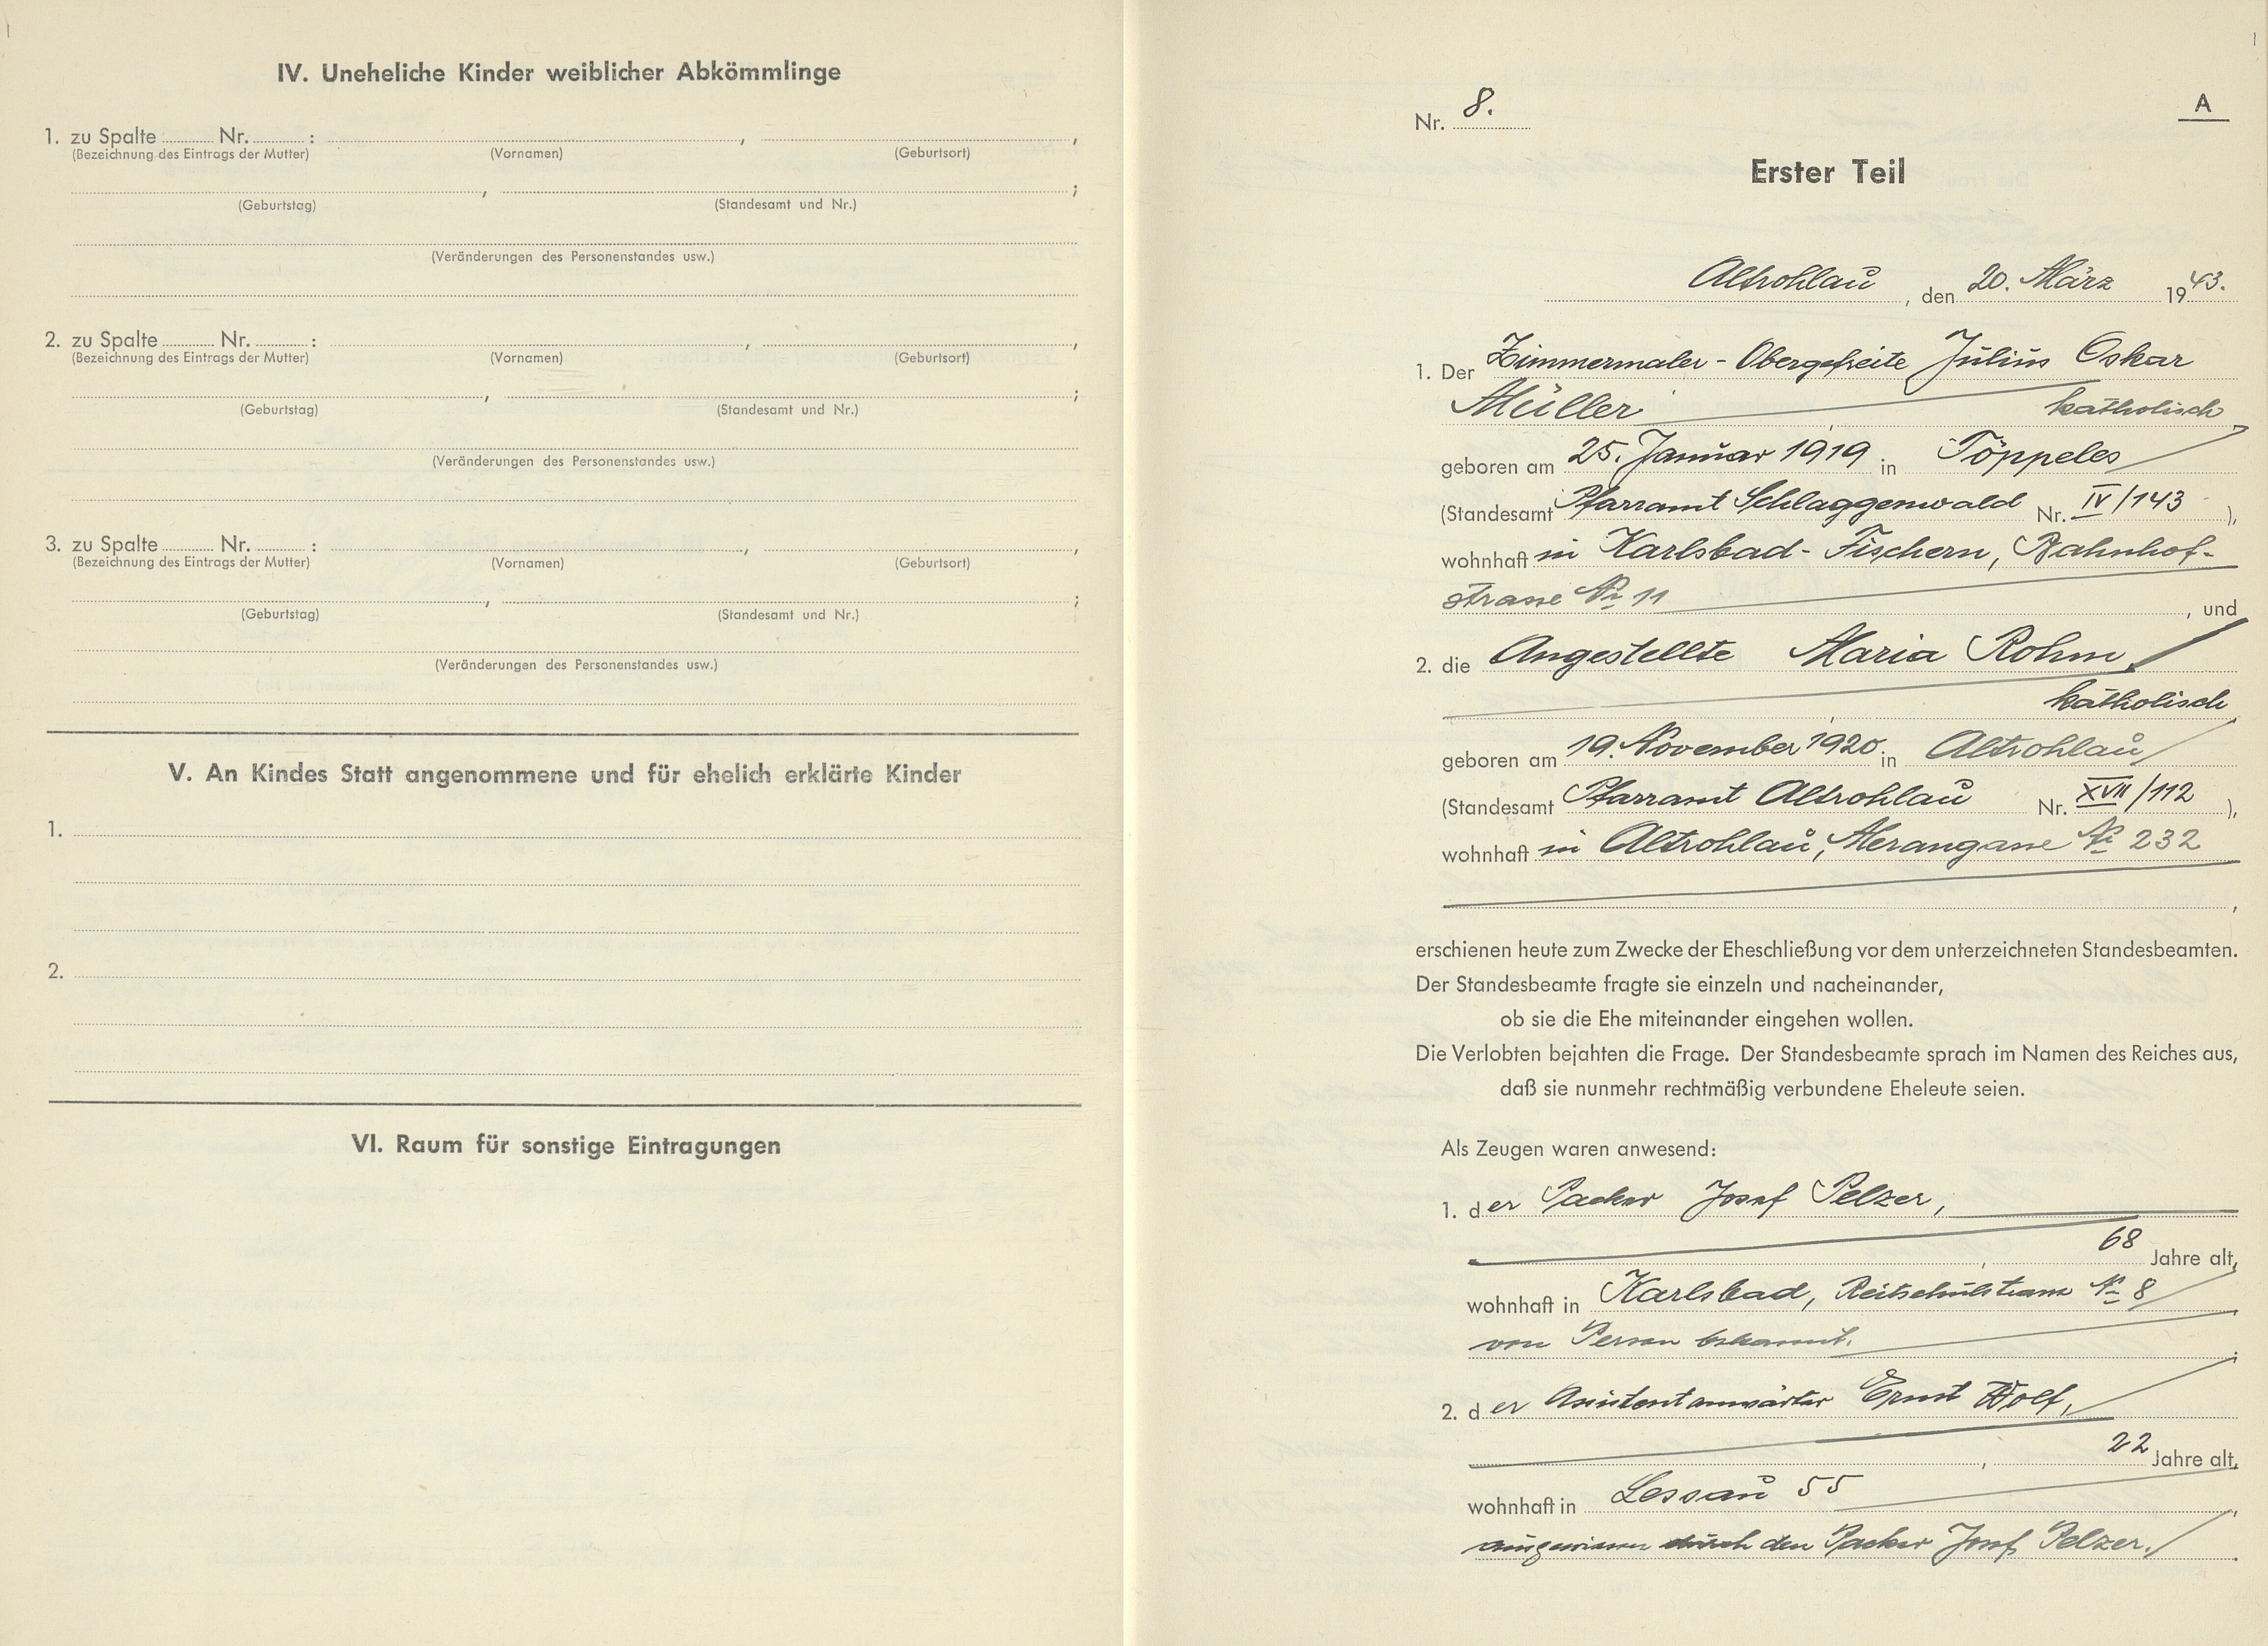 IV. Uneheliche Kinder weiblicher Abkömmlinge
1. zu Spalte ........ Nr. ........ : ........ , ........ ,
(Bezeichnung des Eintrags der Mutter) (Vornamen) (Geburtsort)
........ , ........ ;
(Geburtstag) (Standesamt und Nr.)
(Veränderungen des Personenstandes usw.)
2. zu Spalte ........ Nr. ........ : ........ , ........ ,
(Bezeichnung des Eintrags der Mutter) (Vornamen) (Geburtsort)
........ , ........ ;
(Geburtstag) (Standesamt und Nr.)
(Veränderungen des Personenstandes usw.)
3. zu Spalte ........ Nr. ........ : ........ , ........ ,
(Bezeichnung des Eintrags der Mutter) (Vornamen) (Geburtsort)
........ , ........ ;
(Geburtstag) (Standesamt und Nr.)
(Veränderungen des Personenstandes usw.)
V. An Kindes Statt angenommene und für ehelich erklärte Kinder
1.
2.
VI. Raum für sonstige Eintragungen
A
Nr. 8.
Erster Teil
Altrohlau , den 20. März 1943.
1. Der Zimmermaler - Obergefreite Julius Oskar
Müller katholisch
geboren am 25. Januar 1919 in Töppeles
(Standesamt Pfarramt Schlaggenwald Nr. IV/143 ),
wohnhaft in Karlsbad - Fischern, Bahnhof-
strasse № 11 , und
2. die Angestellte Maria Rohm
katholisch
geboren am 19. November 1920 in Altrohlau
(Standesamt Pfarramt Altrohlau Nr. XVII/112 ),
wohnhaft in Altrohlau, Merangasse № 232
,
erschienen heute zum Zwecke der Eheschließung vor dem unterzeichneten Standesbeamten.
Der Standesbeamte fragte sie einzeln und nacheinander,
ob sie die Ehe miteinander eingehen wollen.
Die Verlobten bejahten die Frage. Der Standesbeamte sprach im Namen des Reiches aus,
daß sie nunmehr rechtmäßig verbundene Eheleute seien.
Als Zeugen waren anwesend:
1. der Packer Josef Pelzer,
, 68 Jahre alt,
wohnhaft in Karlsbad, Reitschulstrasse № 8
von Person bekannt.
2. der Assistentanwärter Ernst Wolf,
, 22 Jahre alt,
wohnhaft in Lessau 55 ,
ausgewiesen durch den Packer Josef Pelzer.